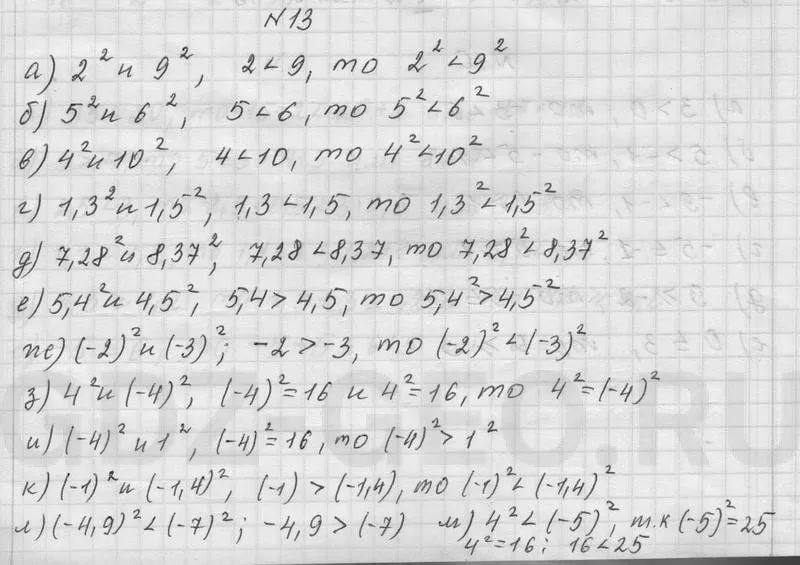 №13
а) 2² и 9², 2<9, то 2²<9²
б) 5² и 6², 5<6, то 5²<6²
в) 4² и 10², 4<10, то 4²<10²
г) 1,3² и 1,5², 1,3<1,5, то 1,3²<1,5²
д) 7,28² и 8,37², 7,28<8,37, то 7,28²<8,37²
е) 5,4² и 4,5², 5,4>4,5, то 5,4²>4,5²
ж) (-2)² и (-3)²; -2>-3, то (-2)²<(-3)²
з) 4² и (-4)², (-4)²=16 и 4²=16, то 4²=(-4)²
и) (-4)² и 1², (-4)²=16, то (-4)²>1²
к) (-1)² и (-1,4)², (-1)>(-1,4), то (-1)²<(-1,4)²
л) (-4,9)²<(-7)²; -4,9>(-7) м) 4²<(-5)², т.к (-5)²=25
4²=16; 16<25
GDZ-GEO.RU